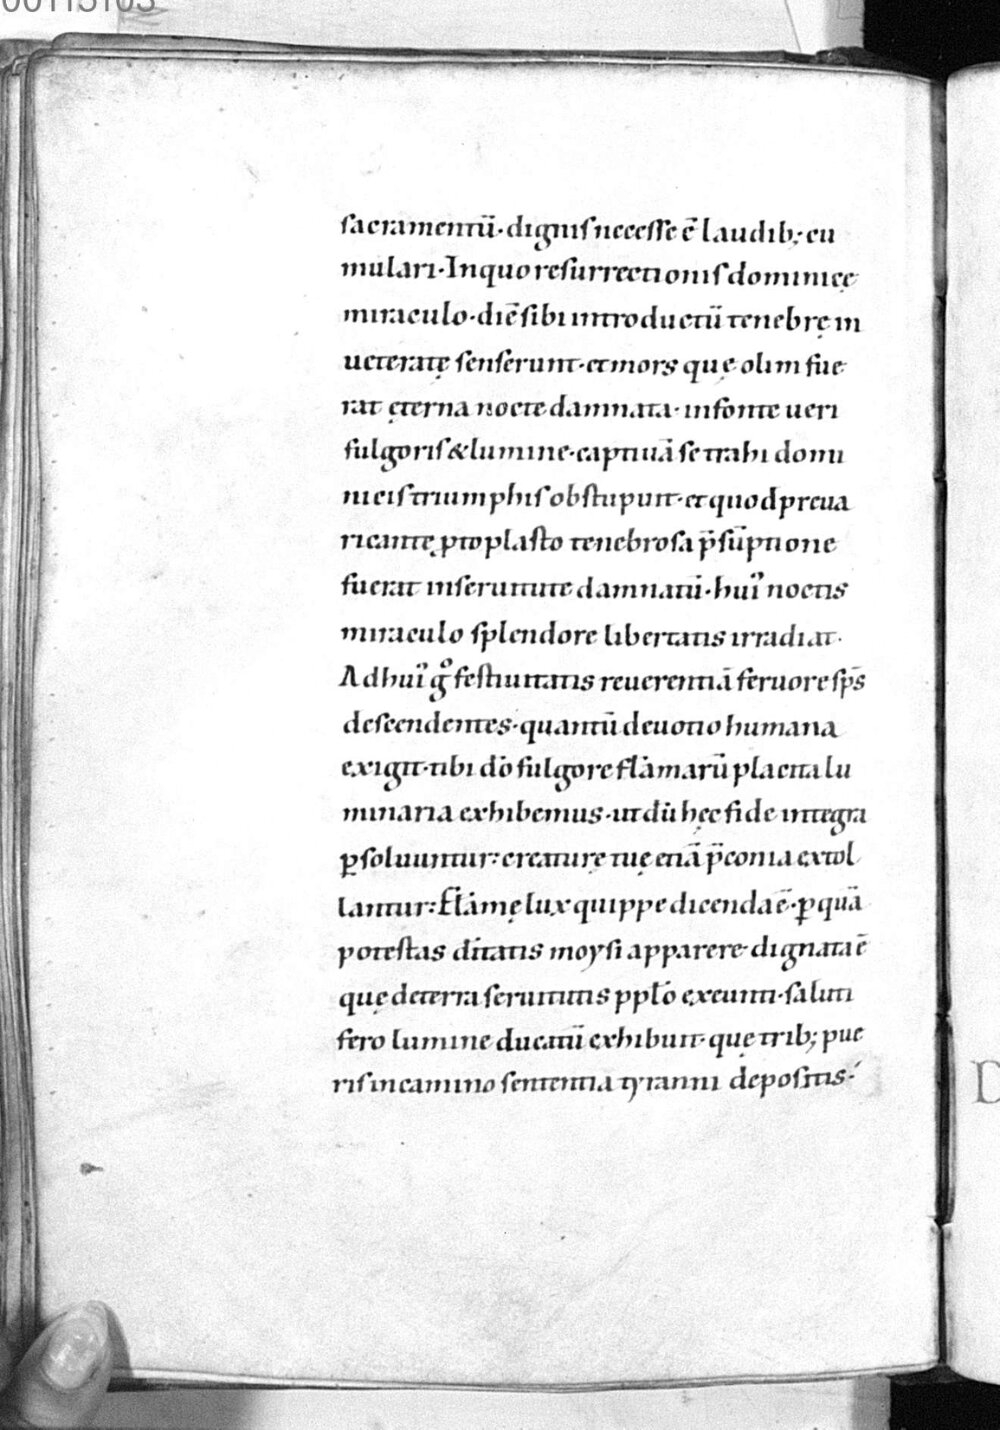 00113103
sacramentū· dignis necesse ē laudib; cu
mulari· In quo resurrectionis dominicę
miraculo· diē sibi introductū tenebrę in
ueteratę senserunt· et mors quę olim fue
rat ęterna nocte damnata· insonte ueri
fulgoris & lumine· captiuā se trahi domi
nicis triumphis obstupuit· et quod preua
ricantę ptoplasto tenebrosa p̄sūptione
fuerat in seruitute damnatū· hui᾽ noctis
miraculo splendore libertatis irradiat·
Ad hui᾽ gͦ festiuitatis reuerentiā feruore sp̄s
descendentes· quantū deuotio humana
exigit· tibi dō fulgore flāmarū placita lu
minaria exhibemus· ut dū hęc fide integra
ꝑsoluuntur: creaturę tuę etiā p̄conia extol
lantur: Flāmę lux quippe dicenda ē· ꝑ quā
potestas dīītatis moysi apparere dignata ē
quę de terra seruitutis pplo exeunti· saluti
fero lumine ducatū exhibuit· quę trib; pue
ris in camino sententia tyranni depositis·
D